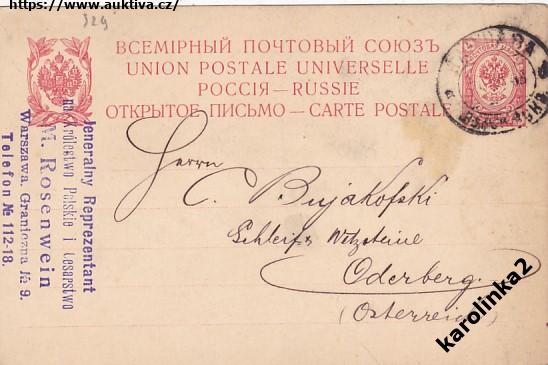 https://www.auktiva.cz/
329
ВСЕМІРНЫЙ ПОЧТОВЫЙ СОЮЗЪ
UNION POSTALE UNIVERSELLE
РОССІЯ — RUSSIE
ОТКРЫТОЕ ПИСЬМО — CARTE POSTALE
Jeneralny Reprezentant
na Królestwo Polskie i Cesarstwo
M. Rosenwein
Warszawa, Graniczna № 9.
Telefon № 112-18.
Herrn
C. Bujakofski
Schleif & Wetzsteine
Oderberg.
(Osterreich)
karolinka2